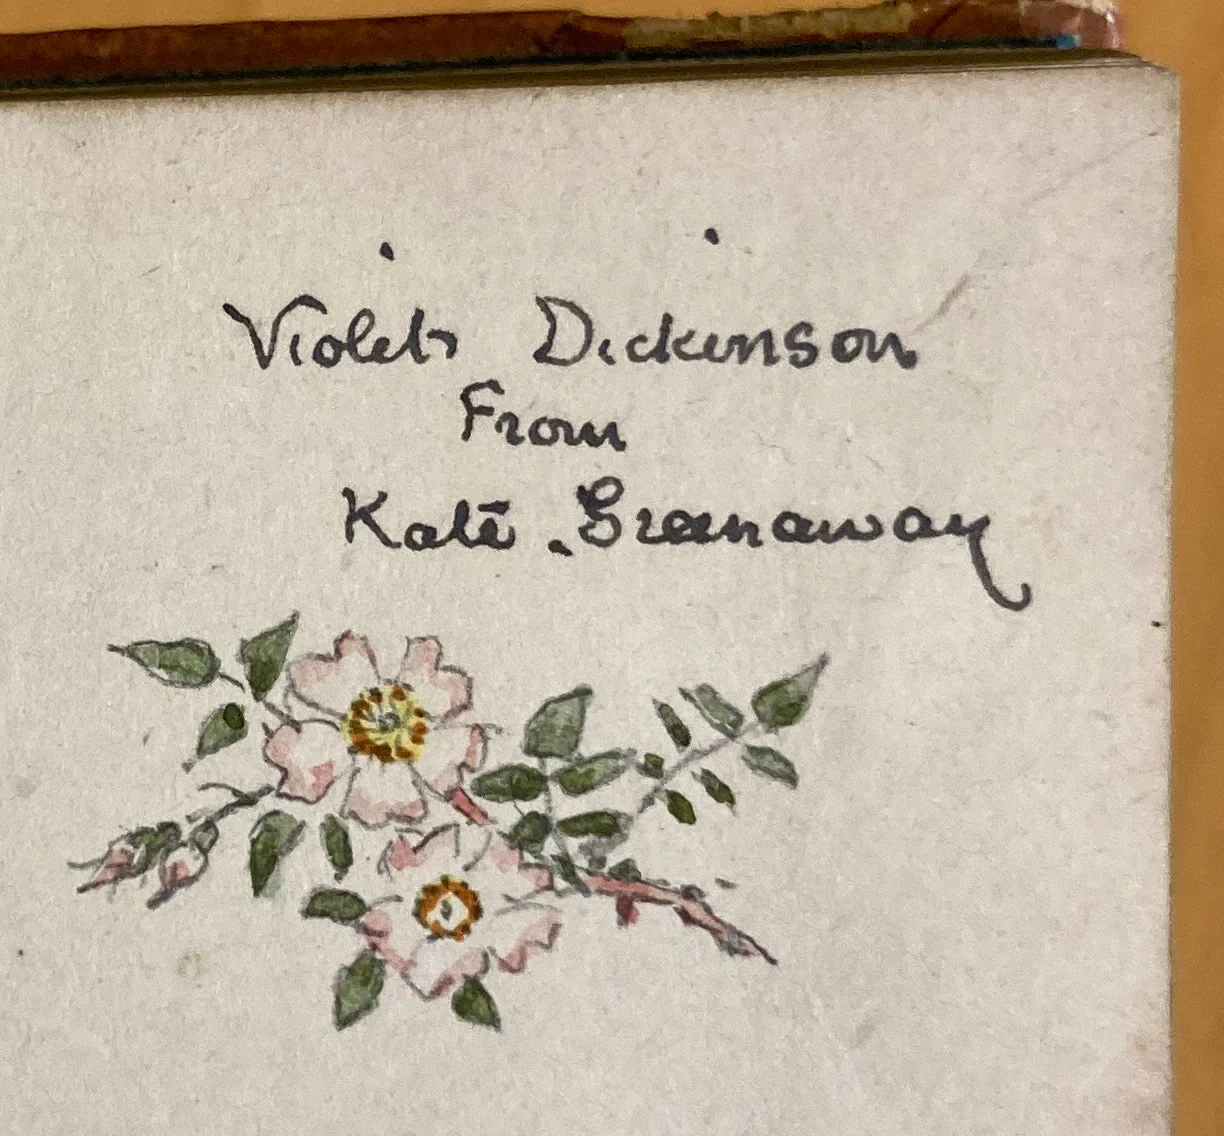 Violet Dickinson
From
Kate Greenaway